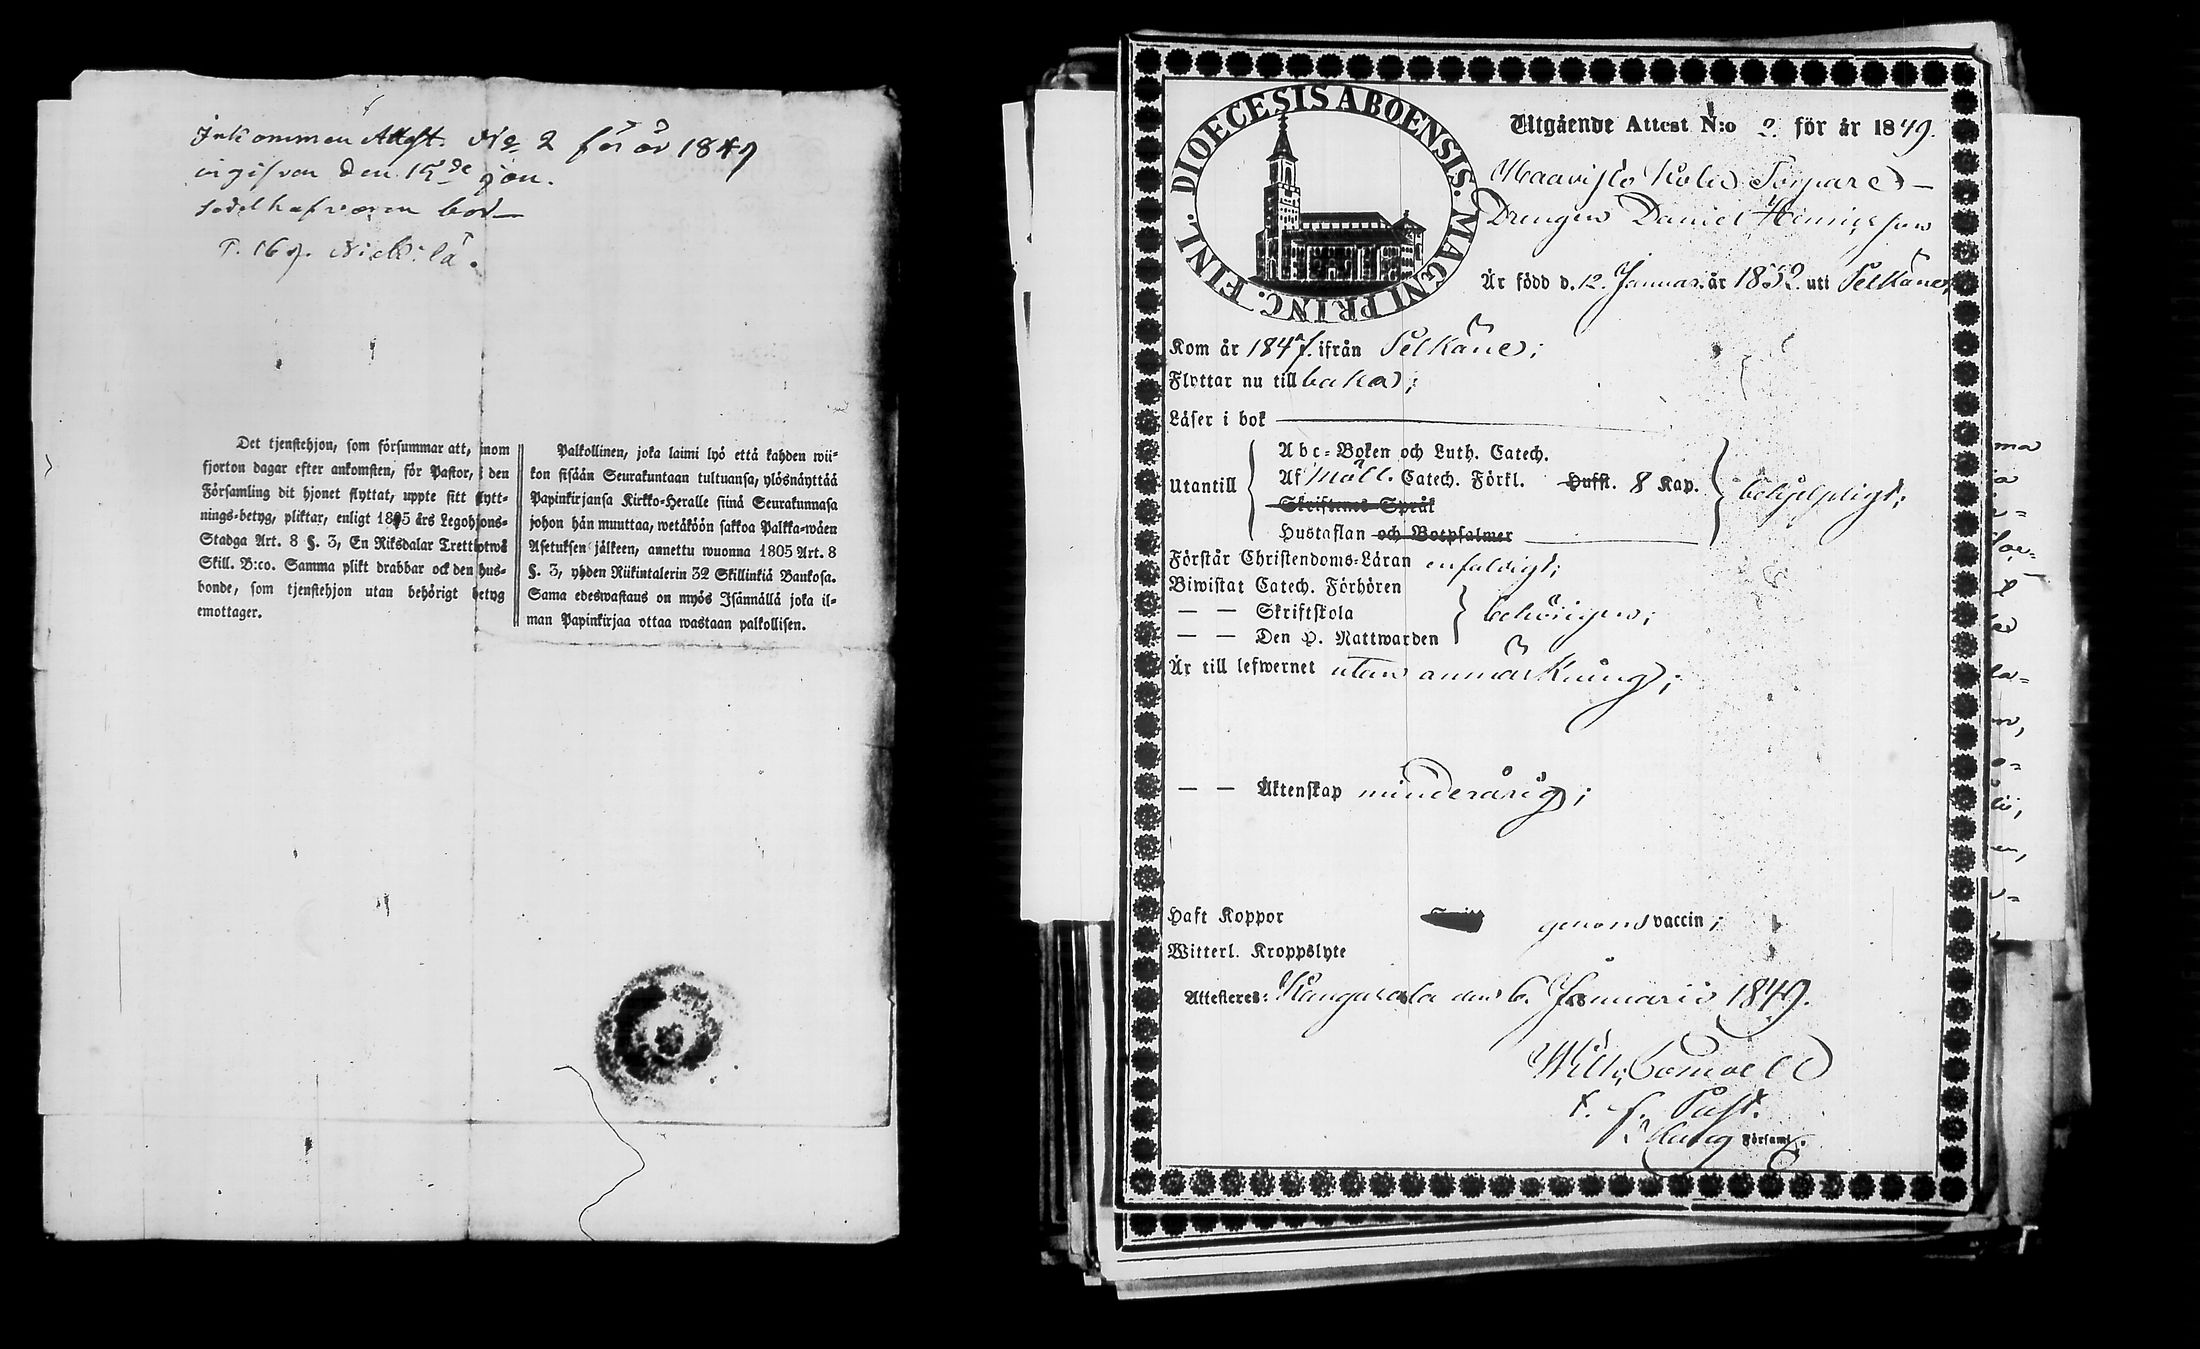 Inkommen Attest. No 2 för år 1849
ingifven den 15de jan.
sedelhafvaren bor
P. 169. Nickilä.
Det tjenstehjon, som försummar att, inom
fjorton dagar efter ankomsten, för Pastor, i den
Församling dit hjonet flyttat, uppte sitt flytt-
nings-betyg, pliktar, enligt 1805 års Legohjons-
Stadga Art. 8 §. 3, En Riksdalar Trettiotwå
Skill. B:co. Samma plikt drabbar ock den hus-
bonde, som tjenstehjon utan behörigt betyg
emottager.
Palkollinen, joka laimi lyö että kahden wii-
kon sisään Seurakuntaan tultuansa, ylösnäyttää
Papinkirjansa Kirkko-Heralle siinä Seurakunnasa
johon hän muuttaa, wetäköön sakkoa Palkka-wäen
Asetuksen jälkeen, annettu wuonna 1805 Art. 8
§. 3, yhden Riikintalerin 32 Skillinkiä Bankosa.
Sama edeswastaus on myös Isännällä joka il-
man Papinkirjaa ottaa wastaan palkollisen.
DIOECESIS ABOENSIS. MAGNI PRINC. FINL.
Utgående Attest N:o 2. för år 1849.
Maavisto Kolu Torpare
Drengen Daniel Henricsson
Är född d. 12. Januar. år 1832. uti Pelkäne,
Kom år 1847. ifrån Pelkäne;
Flyttar nu till baka;
Läser i bok
Utantill
Abc-Boken och Luth. Catech.
Af Möll. Catech. Förkl. Hufst. 8 Kap.
Skriftenes Språk
Hustaflan och Botpsalmer
behjelpligt;
Förstår Christendoms-Läran enfaldigt;
Biwistat Catech. Förhören
— — Skriftskola
— — Den H. Nattwarden
behörigen;
Är till lefwernet utan anmärkning;
— — Äktenskap minderårig;
Haft Koppor genom vaccin;
Witterl. Kroppslyte
Attesteres: Kangasala den 6. Januarii 1849.
Wilh.
t. f. Past.
i Kang Församl.